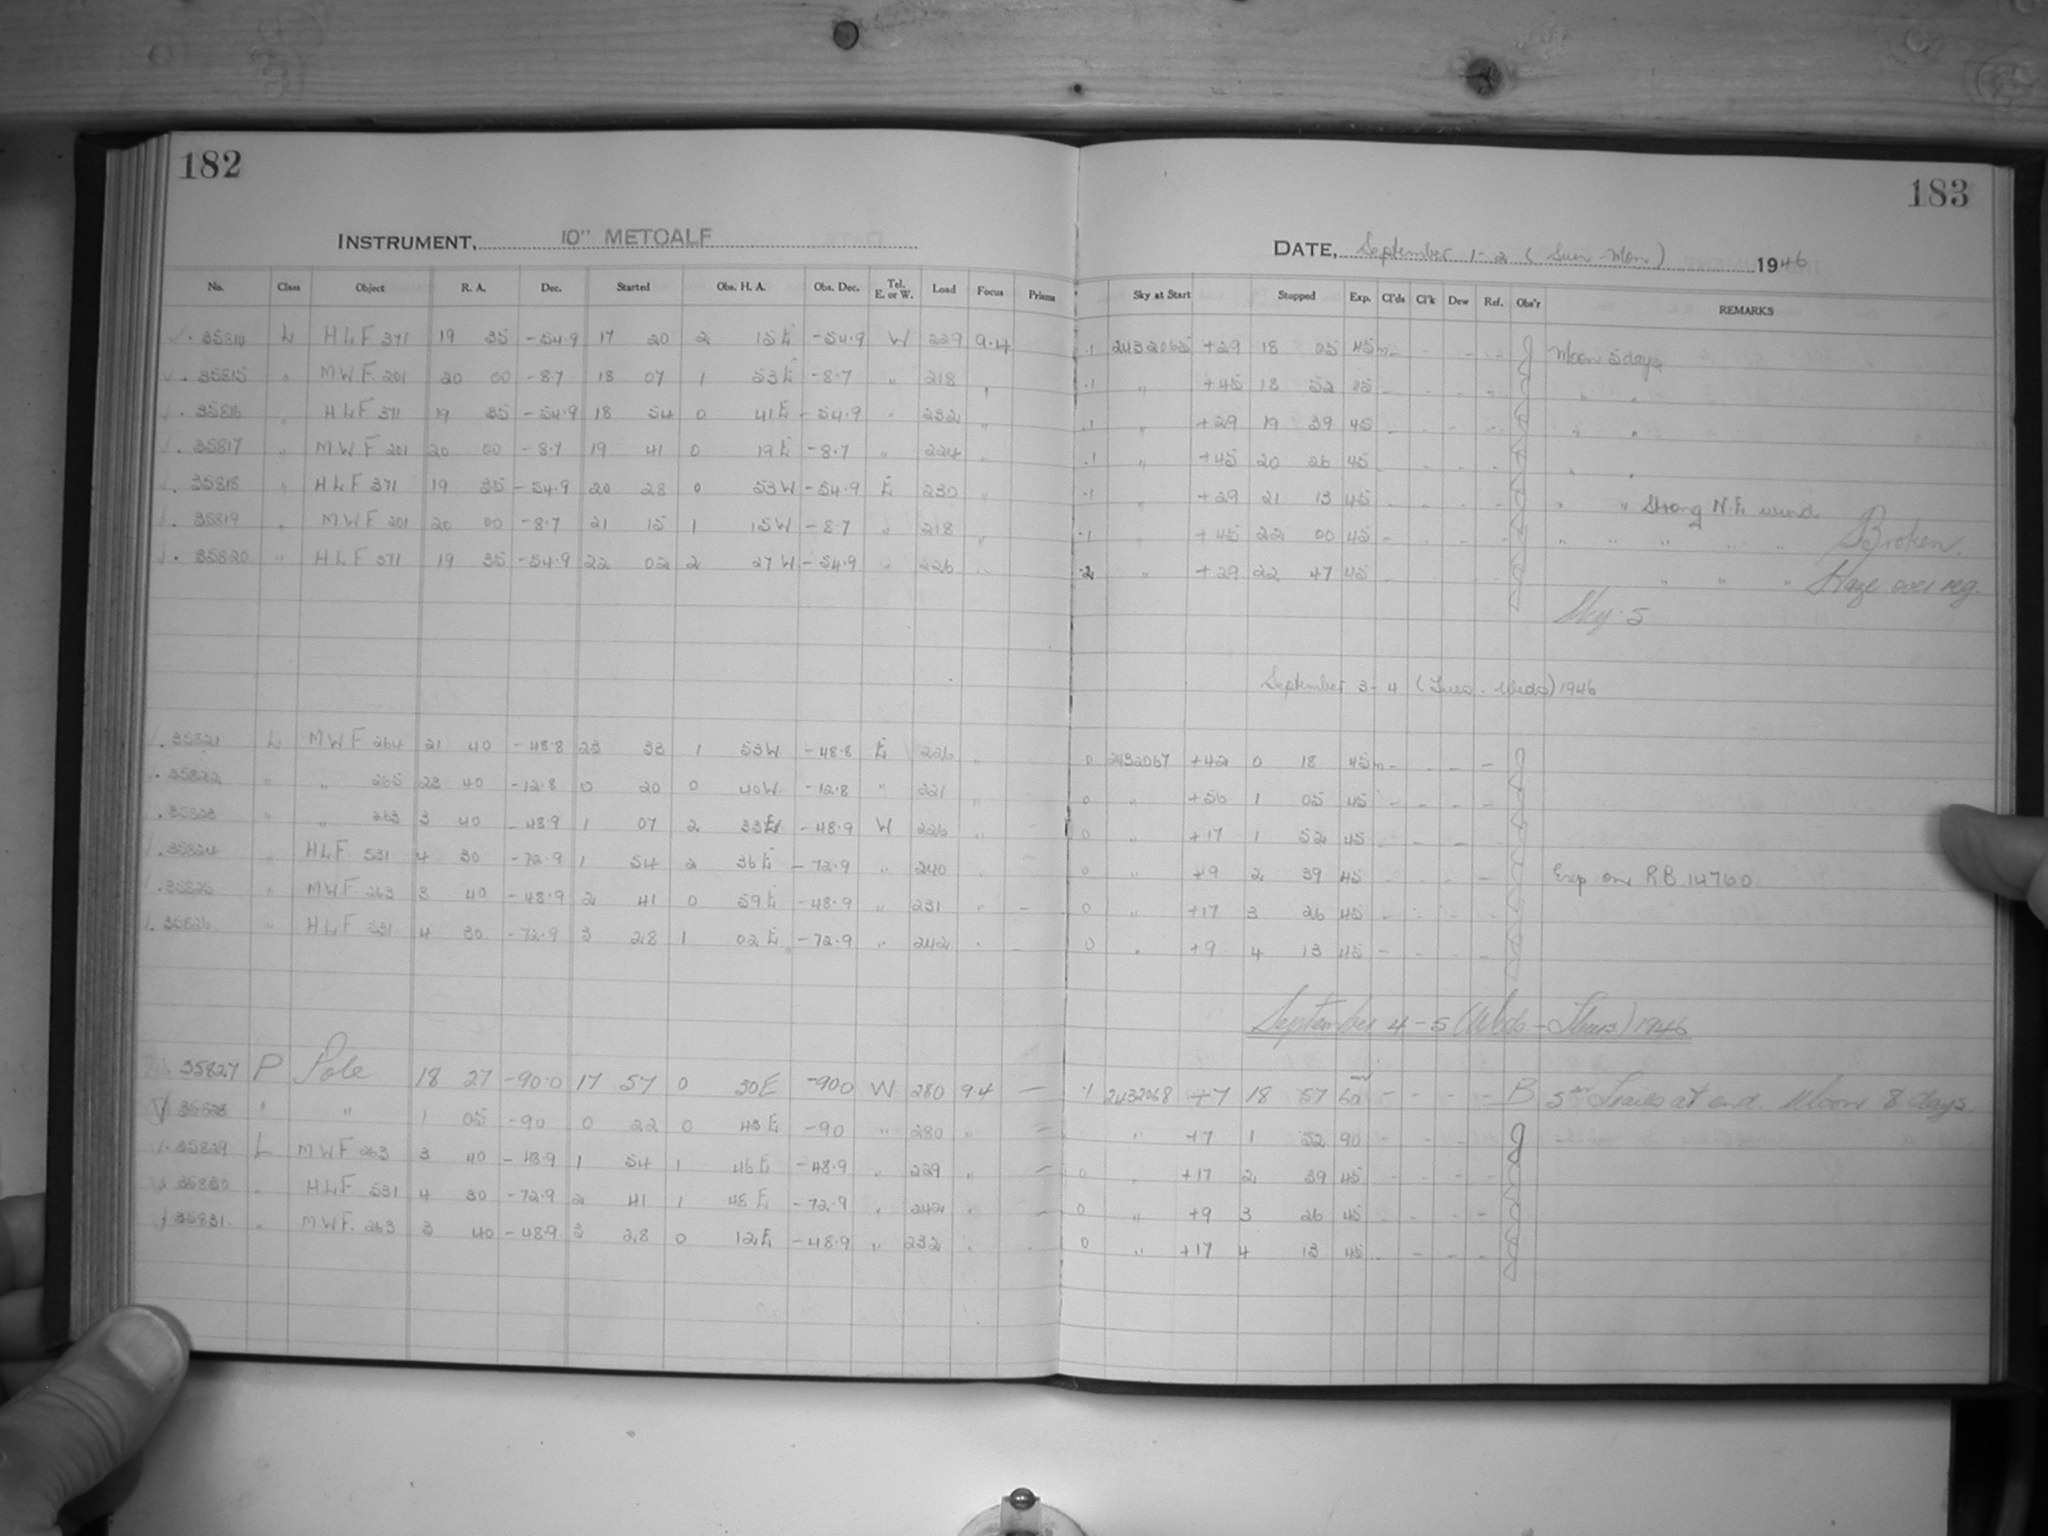 182
INSTRUMENT, 10" METCALF
No. Class Object R. A. Dec. Started Obs. H. A. Obs. Dec. Tel. E. or W. Load Focus Prisms
35814 L HLF 371 19 35 -54.9 17 20 2 15E -54.9 W 229 9.4
35815 " MWF. 201 20 00 -8.7 18 07 1 53E -8.7 " 218 "
35816 " HLF 371 19 35 -54.9 18 54 0 41E -54.9 " 232 "
35817 " MWF 201 20 00 -8.7 19 41 0 19E -8.7 " 224 "
35818 " HLF 371 19 35 -54.9 20 28 0 53W -54.9 E 230 "
35819 " MWF 201 20 00 -8.7 21 15 1 15W -8.7 " 218 "
35820 " HLF 371 19 35 -54.9 22 02 2 27W -54.9 " 226 "
35821 L MWF 264 21 40 -48.8 23 33 1 53W -48.8 E 226 "
35822 " " 265 23 40 -12.8 0 20 0 40W -12.8 " 221 "
35823 " " 263 3 40 -48.9 1 07 2 33E -48.9 W 226 " -
35824 " HLF 531 4 30 -72.9 1 54 2 36E -72.9 " 240 " -
35825 " MWF 263 3 40 -48.9 2 41 0 59E -48.9 " 231 " -
35826 " HLF 531 4 30 -72.9 3 28 1 02E -72.9 " 242 " -
35827 P Pole 18 27 -90.0 17 57 0 30E -900 W 280 94 -
35828 " " 1 05 -90 0 22 0 43E -90 " 280 " -
35829 L MWF 263 3 40 -48.9 1 54 1 46E -48.9 " 229 " -
35830 " HLF 531 4 30 -72.9 2 41 1 48E -72.9 " 242 " -
35831 " MWF. 263 3 40 -48.9 3 28 0 12E -48.9 " 232 " -
183
DATE, September 1-2 (Sun-Mon) 1946
Sky at Start Stopped Exp. Cl'ds Cl'k Dew Ref. Obs'r REMARKS
.1 2432065 +29 18 05 45m - - - - Moon 5 days
.1 " +45 18 52 45 - - - - " "
.1 " +29 19 39 45 - - - - " "
.1 " +45 20 26 45 - - - - " "
.1 " +29 21 13 45 - - - - " " Strong N.E wind
.1 " +45 22 00 45 - - - - " " " " " Broken.
.2 " +29 22 47 45 - - - - " " " Haze over reg.
Sky .5
September 3-4 (Tues.-Weds) 1946
0 2432067 +42 0 18 45m - - - -
0 " +56 1 05 45 - - - -
0 " +17 1 52 45 - - - -
0 " +9 2 39 45 - - - - Exp on RB.14760
0 " +17 3 26 45 - - - -
0 " +9 4 13 45 - - - -
September 4-5 (Weds-Thurs) 1946
.1 2432068 +7 18 57 60m - - - - B 5m Trails at end. Moon 8 days.
" +7 1 52 90 - - - -
0 " +17 2 39 45 - - - -
0 " +9 3 26 45 - - - -
0 " +17 4 13 45 - - - -